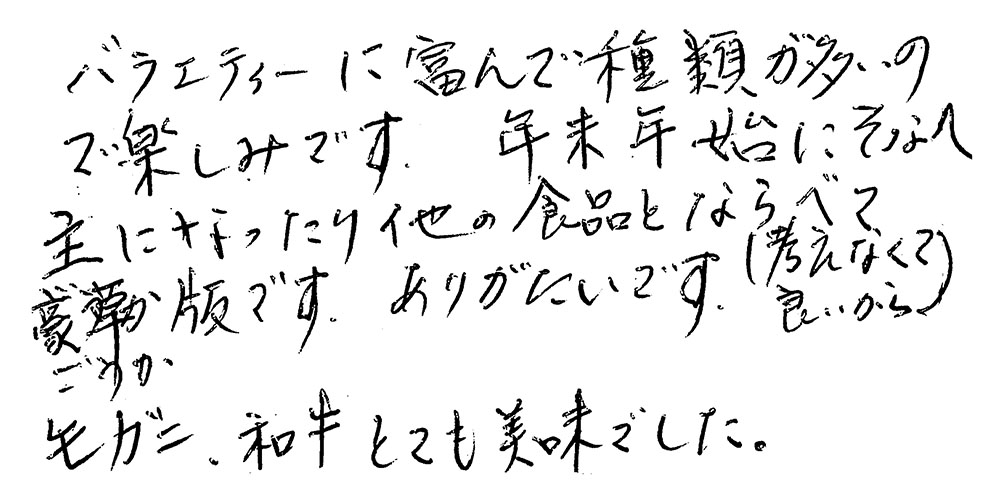 バラエティーに富んで種類が多いの
で楽しみです. 年末年始にそなへ
主になったり他の食品とならべて
豪華か版です. ありがたいです. (考えなくて
良いから)
ごうか
毛ガニ、和牛とても美味でした。